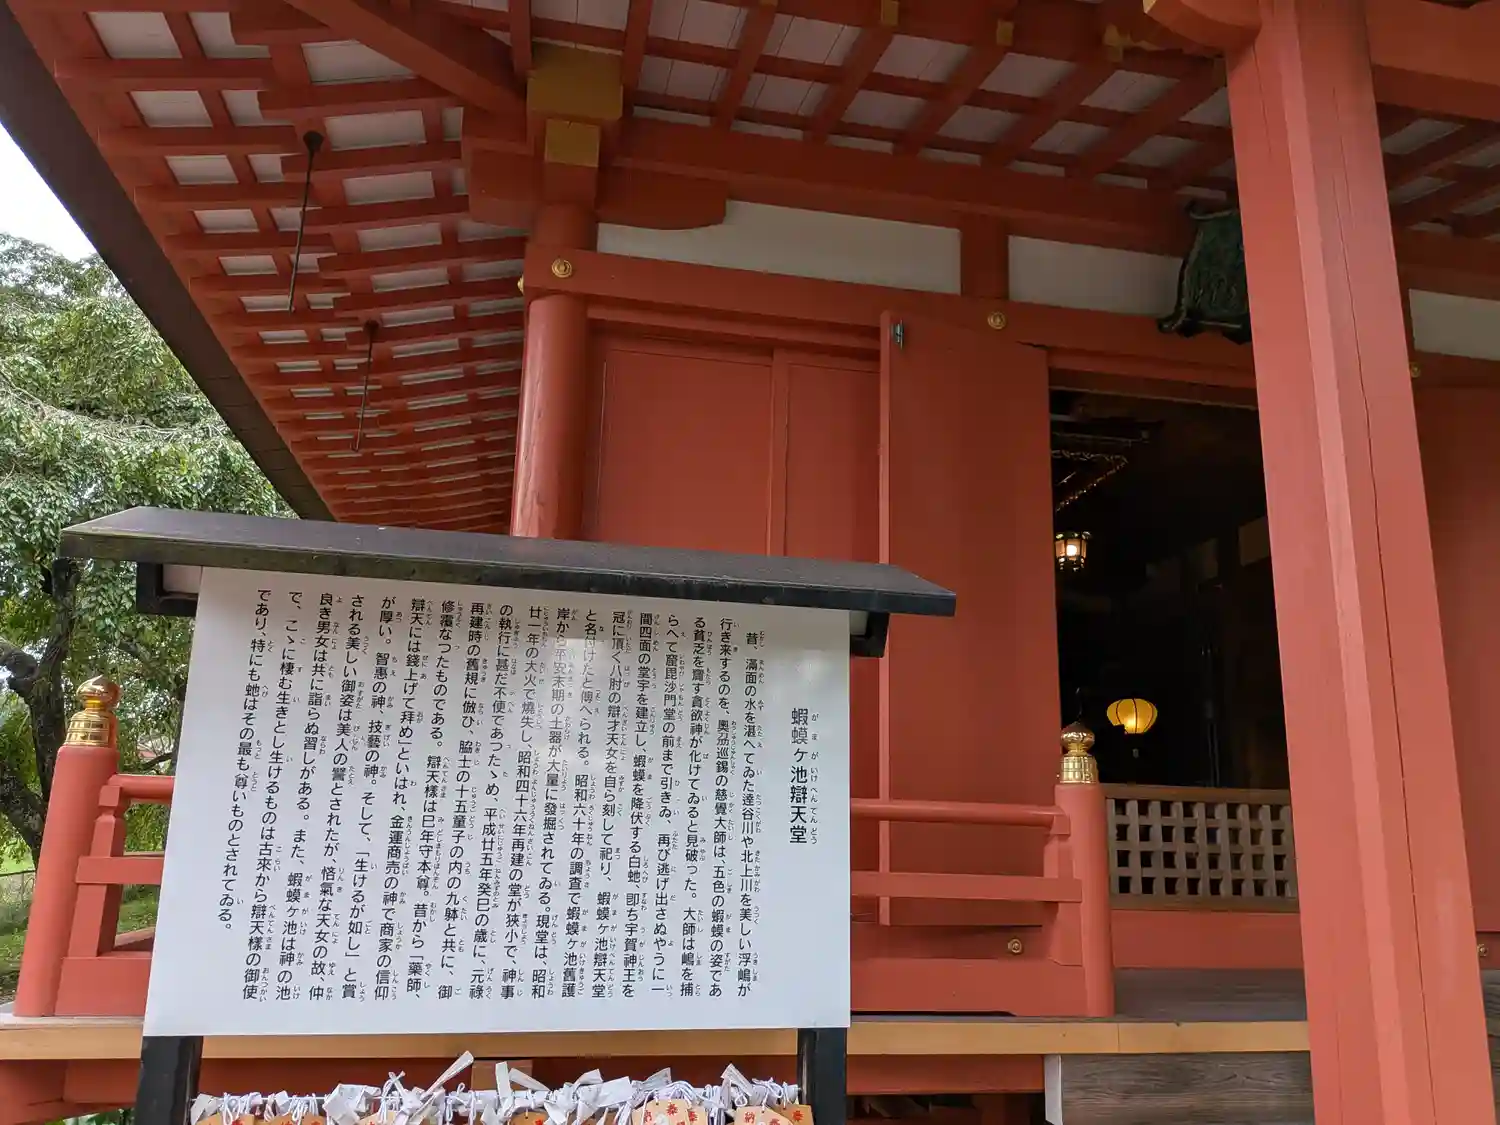 蝦蟆ヶ池辯天堂
昔、滿面の水を湛へてゐた達谷川や北上川を美しい浮嶋が
行き来するのを、奧羽巡錫の慈覺大師は、五色の蝦蟆の姿であ
る貧乏を齎す貪欲神が化けてゐると見破った。大師は嶋を捕
らへて窟毘沙門堂の前まで引きゐ、再び逃げ出さぬやうに一
間四面の堂宇を建立し、蝦蟆を降伏する白虵、卽ち宇賀神王を
冠に頂く八肘の辯才天女を自ら刻して祀り、蝦蟆ヶ池辯天堂
と名付けたと傳へられる。昭和六十年の調査で蝦蟆ヶ池舊護
岸から平安末期の土器が大量に發掘されてゐる。現堂は、昭和
廿一年の大火で燒失し、昭和四十六年再建の堂が狹小で、神事
の執行に甚だ不便であつたゝめ、平成廿五年癸巳の歳に、元祿
再建時の舊規に倣ひ、脇士の十五童子の内の九躰と共に、御
修覆なつたものである。辯天様は巳年守本尊。昔から「藥師、
辯天には錢上げて拜め」といはれ、金運商売の神で商家の信仰
が厚い。智惠の神、技藝の神。そして、「生けるが如し」と賞
される美しい御姿は美人の譬とされたが、悋氣な天女の故、仲
良き男女は共に詣らぬ習しがある。また、蝦蟆ヶ池は神の池
で、こゝに棲む生きとし生けるものは古來から辯天様の御使
であり、特にも虵はその最も尊いものとされてゐる。
奉
納
奉
納